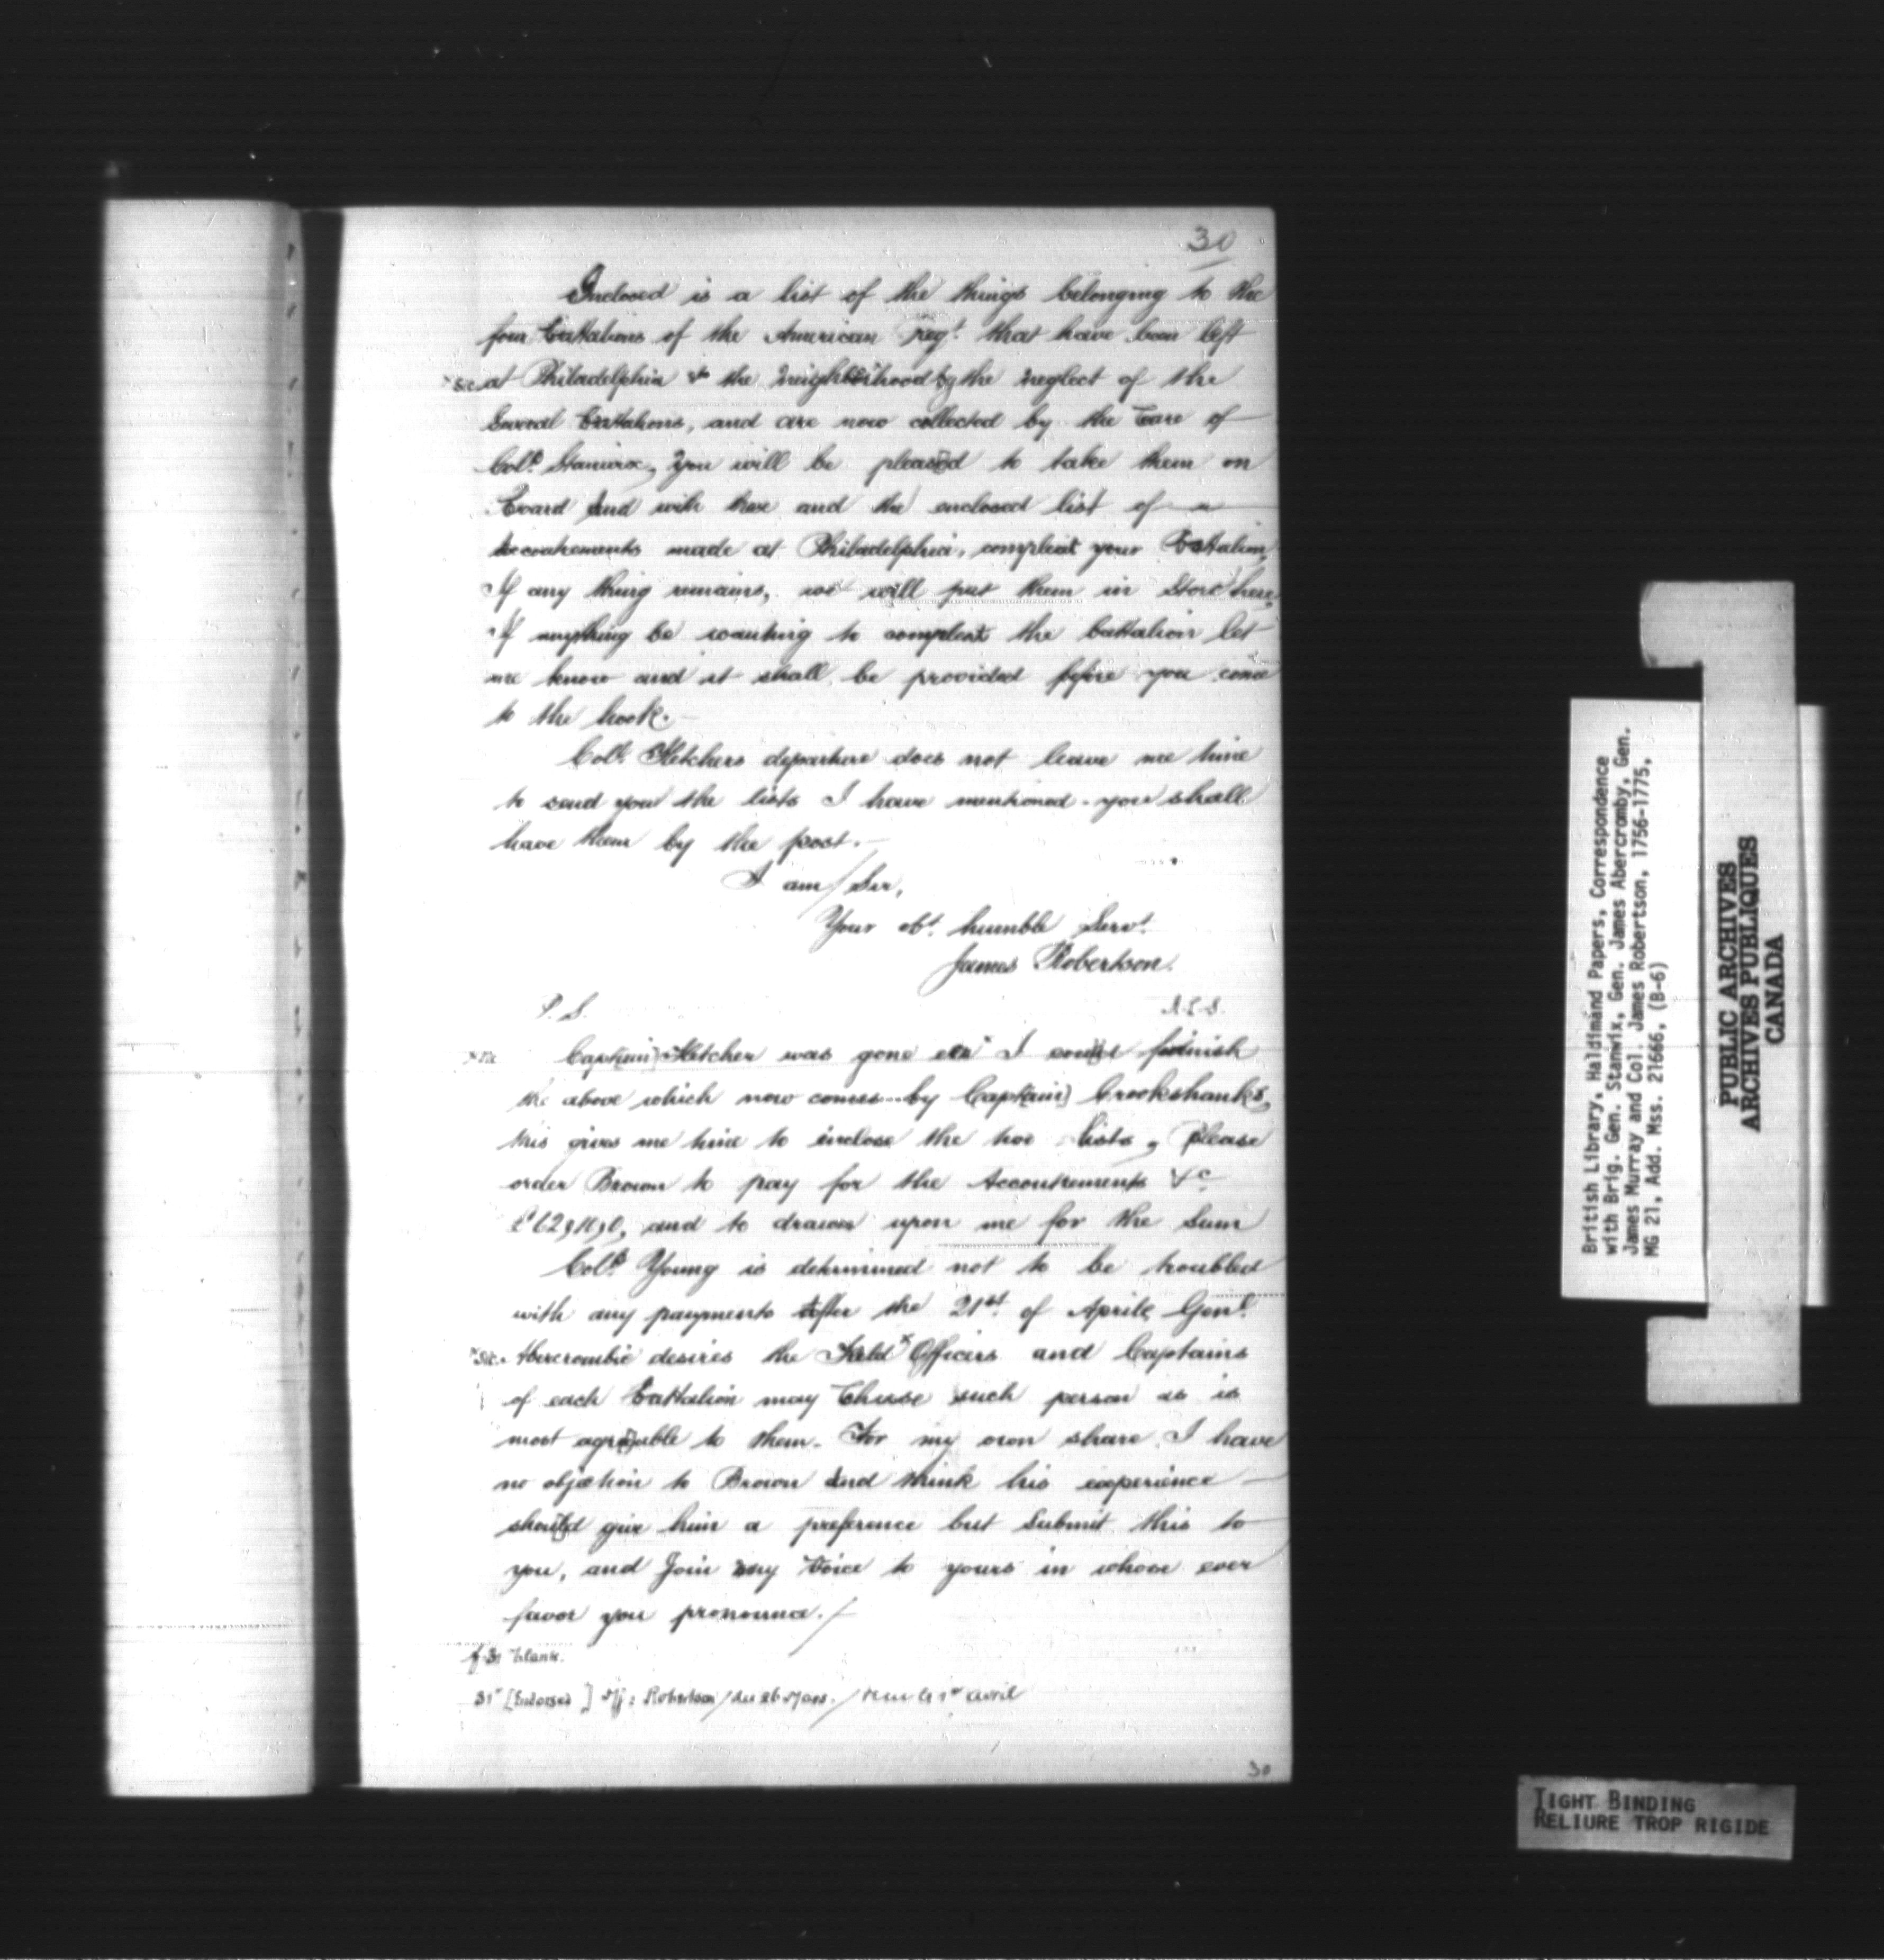 30
Inclosed is a list of the things belonging to the
four Battalions of the American Regt. that have been left
sic at Philadelphia & the Neighborhood by the neglect of the
Several Battalions, and are now collected by the Care of
Coll. Stanwix, you will be pleased to take them on
Board and with these and the enclosed list of
Accoutrements made at Philadelphia, compleat your Battalion,
If any thing remains, we will put them in Store here,
If anything be wanting to compleat the battalion let
me know and it shall be provided before you come
to the hook.
Coll. Fletchers departure does not leave me time
to send you the lists I have mentioned. you shall
have them by the post.
I am / Sir,
Your obt. humble Servt.
James Robertson.
P.S.
A.L.S.
Captain] Fletcher was gone eer I could finish
the above which now comes by Cap[tain] Crookshanks,
this gives me time to inclose the two lists, please
order Brown to pay for the Accoutrements &c
and to drawn upon me for the Sum
Coll. Young is determined not to be troubled
with any payments after the 21st. of Aprile, Genl.
x sic. Abercrombie desires the Field x Officers and Captains
of each Battalion may Chuse such person as is
most agreable to them. For my own share I have
no objection to Brown and think his experience
should give him a preference but Submit this to
you, and Join my Voice to yours in whose ever
favor you pronounce./
f. 31 blank.
31v [Endorsed] Mj: Robertson / du 26 Mars. / 1er avril
30
British Library, Haldimand Papers, Correspondence
with Brig. Gen. Stanwix, Gen. James Abercromby, Gen.
James Murray and Col. James Robertson, 1756-1775,
MG 21, Add. Mss. 21666, (B-6)
PUBLIC ARCHIVES
ARCHIVES PUBLIQUES
CANADA
TIGHT BINDING
RELIURE TROP RIGIDE